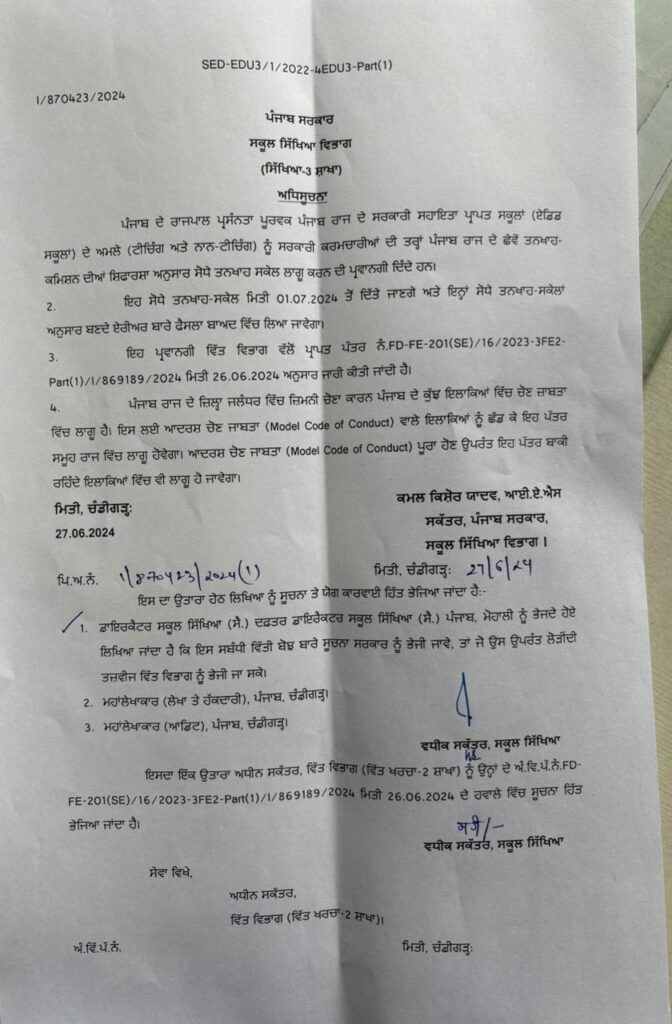 SED-EDU3/1/2022-4EDU3-Part(1)
I/870423/2024
ਪੰਜਾਬ ਸਰਕਾਰ
ਸਕੂਲ ਸਿੱਖਿਆ ਵਿਭਾਗ
(ਸਿੱਖਿਆ-3 ਸ਼ਾਖਾ)
ਅਧਿਸੂਚਨਾ
ਪੰਜਾਬ ਦੇ ਰਾਜਪਾਲ ਪ੍ਰਸੰਨਤਾ ਪੂਰਵਕ ਪੰਜਾਬ ਰਾਜ ਦੇ ਸਰਕਾਰੀ ਸਹਾਇਤਾ ਪ੍ਰਾਪਤ ਸਕੂਲਾਂ (ਏਡਿਡ
ਸਕੂਲਾਂ) ਦੇ ਅਮਲੇ (ਟੀਚਿੰਗ ਅਤੇ ਨਾਨ-ਟੀਚਿੰਗ) ਨੂੰ ਸਰਕਾਰੀ ਕਰਮਚਾਰੀਆਂ ਦੀ ਤਰ੍ਹਾਂ ਪੰਜਾਬ ਰਾਜ ਦੇ ਛੇਵੇਂ ਤਨਖਾਹ-
ਕਮਿਸ਼ਨ ਦੀਆਂ ਸਿਫਾਰਸ਼ਾਂ ਅਨੁਸਾਰ ਸੋਧੇ ਤਨਖਾਹ ਸਕੇਲ ਲਾਗੂ ਕਰਨ ਦੀ ਪ੍ਰਵਾਨਗੀ ਦਿੰਦੇ ਹਨ।
2. ਇਹ ਸੋਧੇ ਤਨਖਾਹ-ਸਕੇਲ ਮਿਤੀ 01.07.2024 ਤੋਂ ਦਿੱਤੇ ਜਾਣਗੇ ਅਤੇ ਇਨ੍ਹਾਂ ਸੋਧੇ ਤਨਖਾਹ-ਸਕੇਲਾਂ
ਅਨੁਸਾਰ ਬਣਦੇ ਏਰੀਅਰ ਬਾਰੇ ਫੈਸਲਾ ਬਾਅਦ ਵਿੱਚ ਲਿਆ ਜਾਵੇਗਾ।
3. ਇਹ ਪ੍ਰਵਾਨਗੀ ਵਿੱਤ ਵਿਭਾਗ ਵੱਲੋਂ ਪ੍ਰਾਪਤ ਪੱਤਰ ਨੰ.FD-FE-201(SE)/16/2023-3FE2-
Part(1)/I/869189/2024 ਮਿਤੀ 26.06.2024 ਅਨੁਸਾਰ ਜਾਰੀ ਕੀਤੀ ਜਾਂਦੀ ਹੈ।
4. ਪੰਜਾਬ ਰਾਜ ਦੇ ਜ਼ਿਲ੍ਹਾ ਜਲੰਧਰ ਵਿੱਚ ਜ਼ਿਮਨੀ ਚੋਣਾ ਕਾਰਨ ਪੰਜਾਬ ਦੇ ਕੁੱਝ ਇਲਾਕਿਆਂ ਵਿੱਚ ਚੋਣ ਜ਼ਾਬਤਾ
ਵਿੱਚ ਲਾਗੂ ਹੈ। ਇਸ ਲਈ ਆਦਰਸ਼ ਚੋਣ ਜਾਬਤਾ (Model Code of Conduct) ਵਾਲੇ ਇਲਾਕਿਆਂ ਨੂੰ ਛੱਡ ਕੇ ਇਹ ਪੱਤਰ
ਸਮੂਹ ਰਾਜ ਵਿੱਚ ਲਾਗੂ ਹੋਵੇਗਾ। ਆਦਰਸ਼ ਚੋਣ ਜਾਬਤਾ (Model Code of Conduct) ਪੂਰਾ ਹੋਣ ਉਪਰੰਤ ਇਹ ਪੱਤਰ ਬਾਕੀ
ਰਹਿੰਦੇ ਇਲਾਕਿਆਂ ਵਿੱਚ ਵੀ ਲਾਗੂ ਹੋ ਜਾਵੇਗਾ।
ਮਿਤੀ, ਚੰਡੀਗੜ੍ਹ:
27.06.2024
ਕਮਲ ਕਿਸ਼ੋਰ ਯਾਦਵ, ਆਈ.ਏ.ਐਸ
ਸਕੱਤਰ, ਪੰਜਾਬ ਸਰਕਾਰ,
ਸਕੂਲ ਸਿੱਖਿਆ ਵਿਭਾਗ ।
ਪਿ.ਅ.ਨੰ. 1/870423/2024(1) ਮਿਤੀ, ਚੰਡੀਗੜ੍ਹ: 27/6/24
ਇਸ ਦਾ ਉਤਾਰਾ ਹੇਠ ਲਿਖਿਆ ਨੂੰ ਸੂਚਨਾ ਤੇ ਯੋਗ ਕਾਰਵਾਈ ਹਿੱਤ ਭੇਜਿਆ ਜਾਂਦਾ ਹੈ:-
1. ਡਾਇਰਕੈਟਰ ਸਕੂਲ ਸਿੱਖਿਆ (ਸੈ.) ਦਫ਼ਤਰ ਡਾਇਰੈਕਟਰ ਸਕੂਲ ਸਿੱਖਿਆ (ਸੈ.) ਪੰਜਾਬ, ਮੋਹਾਲੀ ਨੂੰ ਭੇਜਦੇ ਹੋਏ
ਲਿਖਿਆ ਜਾਂਦਾ ਹੈ ਕਿ ਇਸ ਸਬੰਧੀ ਵਿੱਤੀ ਬੋਝ ਬਾਰੇ ਸੂਚਨਾ ਸਰਕਾਰ ਨੂੰ ਭੇਜੀ ਜਾਵੇ, ਤਾਂ ਜੋ ਉਸ ਉਪਰੰਤ ਲੋੜੀਂਦੀ
ਤਜ਼ਵੀਜ ਵਿੱਤ ਵਿਭਾਗ ਨੂੰ ਭੇਜੀ ਜਾ ਸਕੇ।
2. ਮਹਾਂਲੇਖਾਕਾਰ (ਲੇਖਾ ਤੇ ਹੱਕਦਾਰੀ), ਪੰਜਾਬ, ਚੰਡੀਗੜ੍ਹ।
3. ਮਹਾਂਲੇਖਾਕਾਰ (ਆਡਿਟ), ਪੰਜਾਬ, ਚੰਡੀਗੜ੍ਹ।
ਵਧੀਕ ਸਕੱਤਰ, ਸਕੂਲ ਸਿੱਖਿਆ
ਇਸਦਾ ਇੱਕ ਉਤਾਰਾ ਅਧੀਨ ਸਕੱਤਰ, ਵਿੱਤ ਵਿਭਾਗ (ਵਿੱਤ ਖਰਚਾ-2 ਸ਼ਾਖਾ) ਨੂੰ ਉਨ੍ਹਾਂ ਦੇ ਅੰ.ਵਿ.ਪੱ.ਨੰ.FD-
FE-201(SE)/16/2023-3FE2-Part(1)/I/869189/2024 ਮਿਤੀ 26.06.2024 ਦੇ ਹਵਾਲੇ ਵਿੱਚ ਸੂਚਨਾ ਹਿੱਤ
ਭੇਜਿਆ ਜਾਂਦਾ ਹੈ।
ਸਹੀ/-
ਵਧੀਕ ਸਕੱਤਰ, ਸਕੂਲ ਸਿੱਖਿਆ
ਸੇਵਾ ਵਿਖੇ,
ਅਧੀਨ ਸਕੱਤਰ,
ਵਿੱਤ ਵਿਭਾਗ (ਵਿੱਤ ਖਰਚਾ-2 ਸ਼ਾਖਾ)।
ਅੰ.ਵਿੱ.ਪੱ.ਨੰ. ਮਿਤੀ, ਚੰਡੀਗੜ੍ਹ: